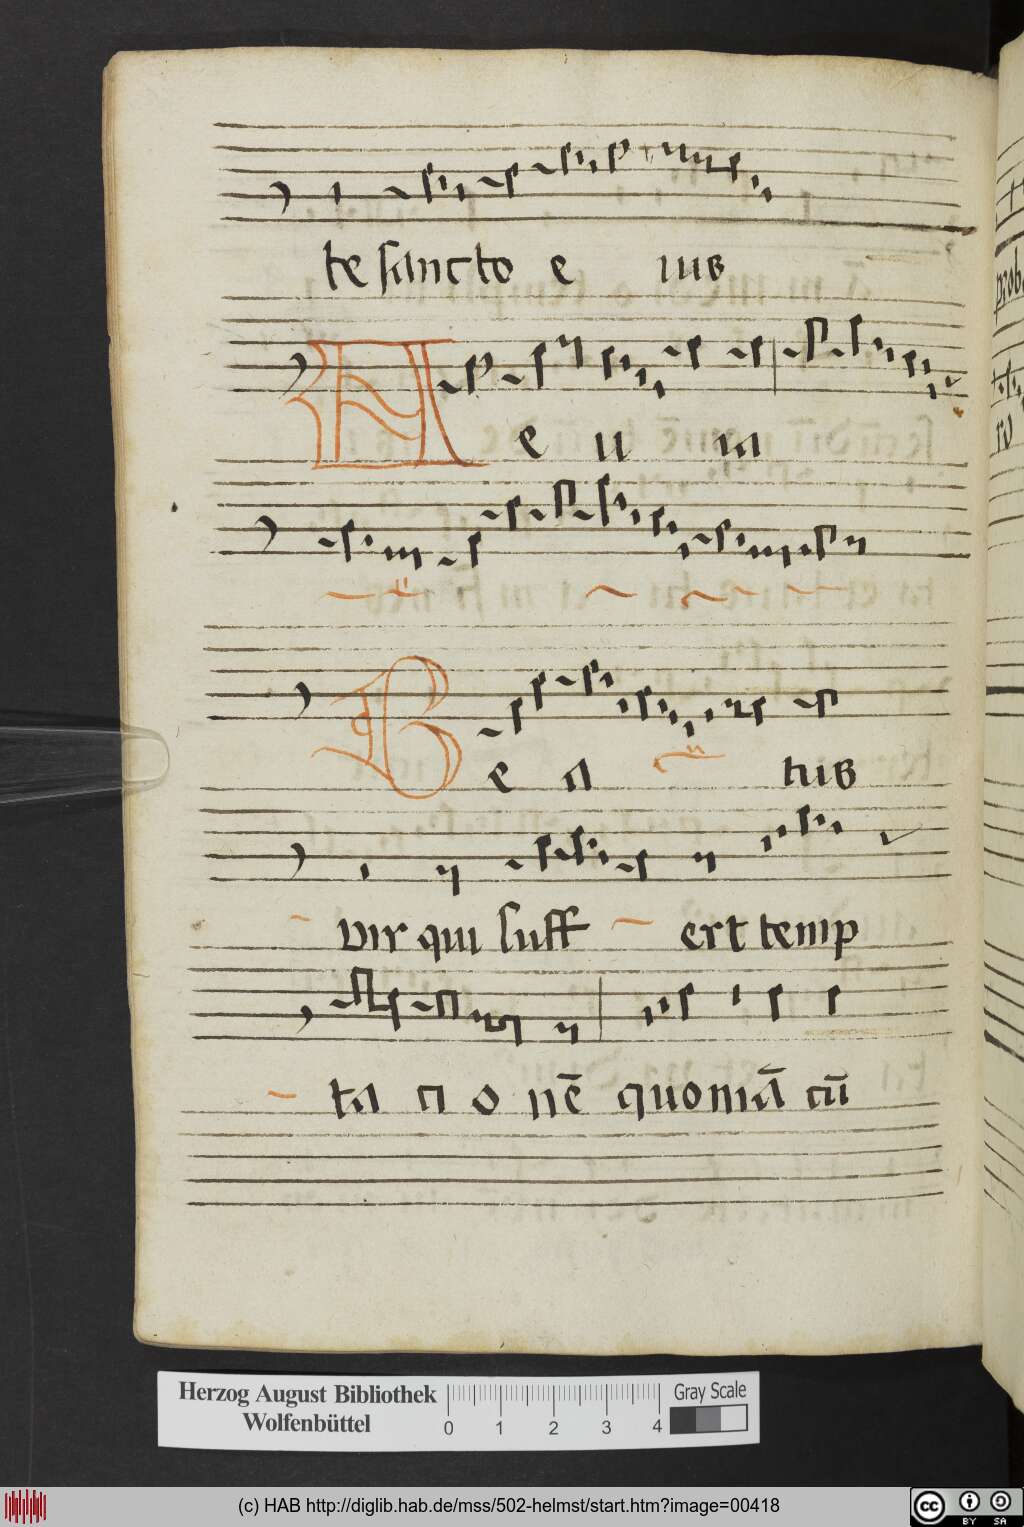 te sancto e ius
A e u ia
B e a tus
vir qui suff ert temp
ta ci o nē quoniā cū
Herzog August Bibliothek
Wolfenbüttel
0 1 2 3 4
Gray Scale
(c) HAB http://diglib.hab.de/mss/502-helmst/start.htm?image=00418
cc BY SA